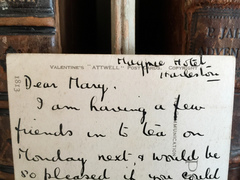 VALENTINE'S "ATTWELL" POST CARD. COPYRIGHT
Magpie Hotel
Harleston
1813
Dear Mary.
I am having a few
friends in to tea on
Monday next & would be
so pleased if you could